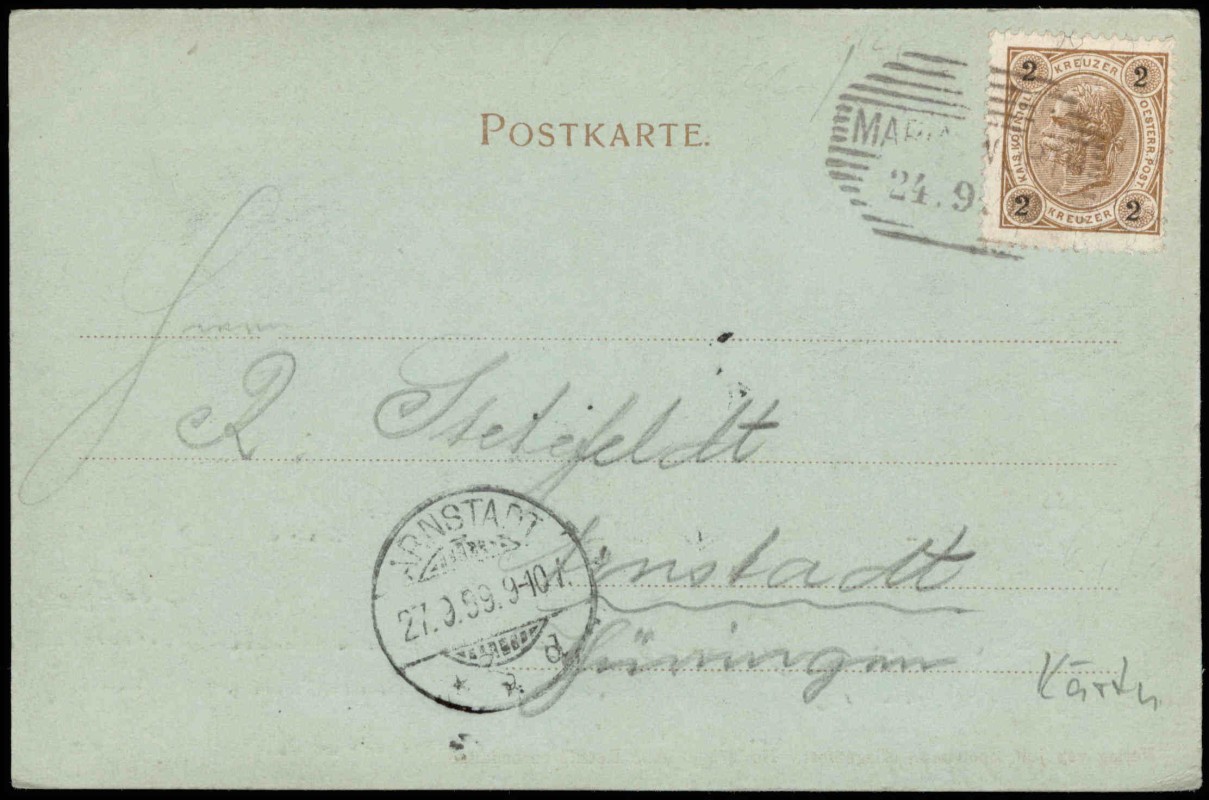 POSTKARTE.
2 KREUZER 2
KAIS. KOENIGL. OESTERR. POST.
2 KREUZER 2
MARIA
24.9
Herrn
R. Stehfeldt
Arnstadt
Thüringen
ARNSTADT
27.9.99.9-10
* *